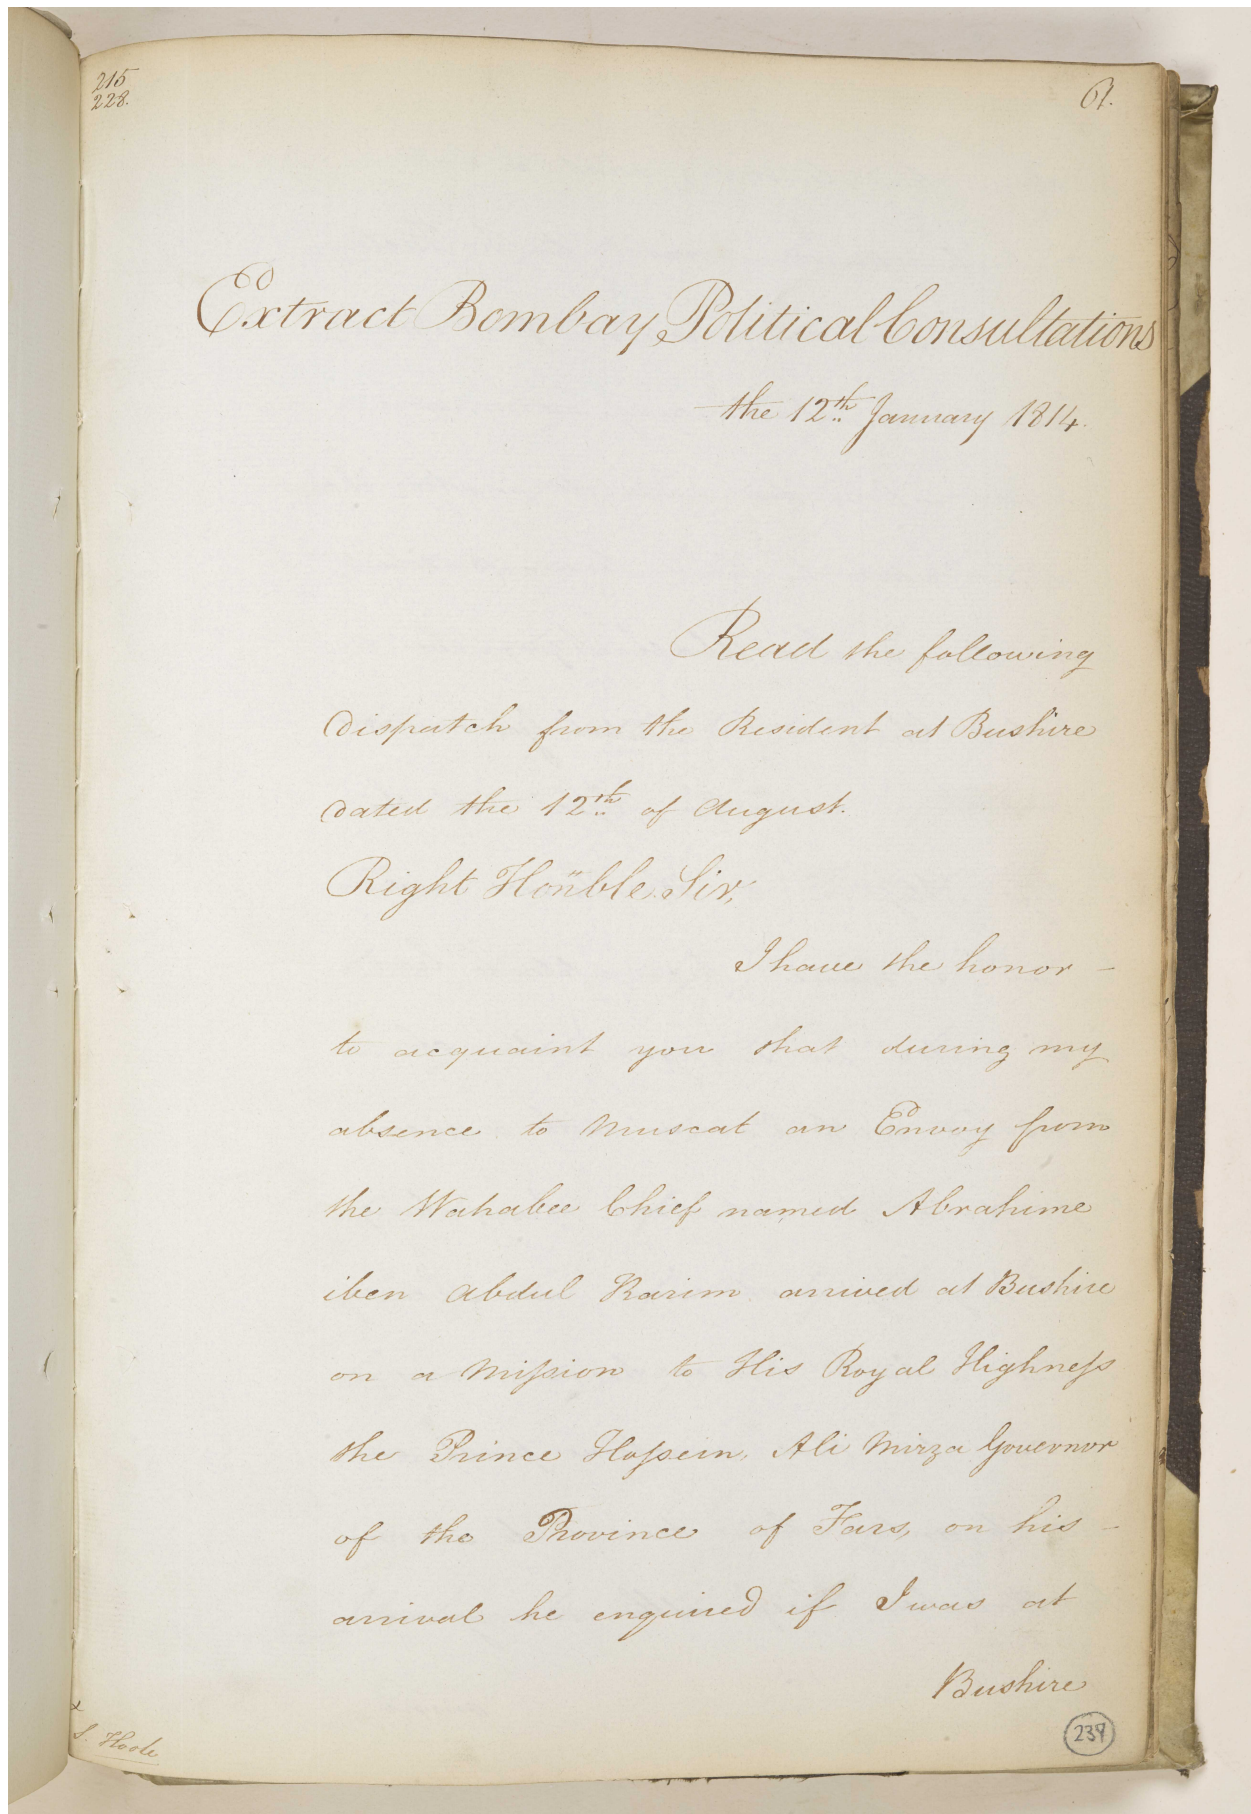 215
228.
61.
Extract Bombay Political Consultations
the 12th January 1814.
Read the following
Dispatch from the Resident at Bushire
dated the 12th of August.
Right Honble. Sir,
I have the honor -
to acquaint you that during my
absence to Muscat an Envoy from
the Wahabee Chief named Abrahime
iben Abdul Karim arrived at Bushire
on a Mission to His Royal Highness
the Prince Hossein, Ali Mirza Governor
of the Province of Fars, on his -
arrival he enquired if I was at
Bushire
239
S. Hoole